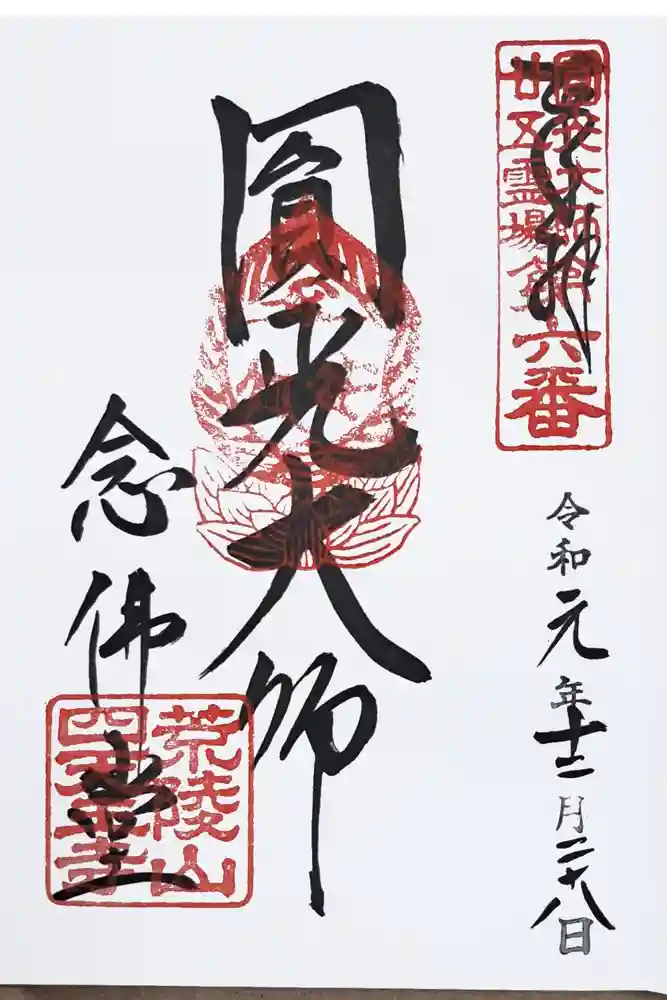 圓光大師
廿五霊場第六番
奉拝
令和元年十二月二十八日
圓光大師
念佛堂
荒陵山
四天王寺